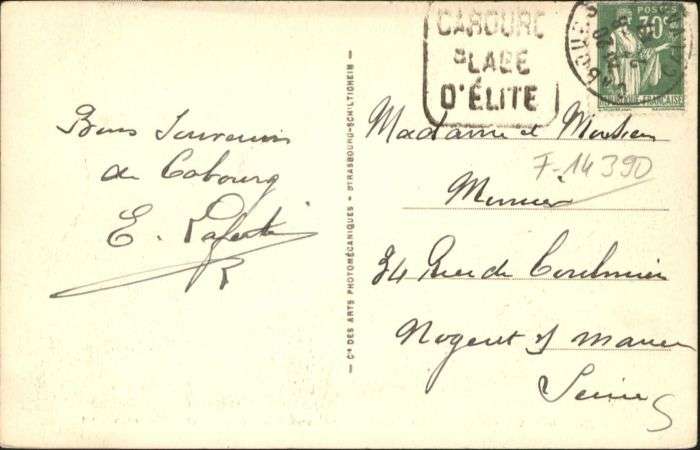 CABOURG
PLAGE
D'ÉLITE
POSTES
30c
CABOURG
Bons Souvenirs
de Cabourg
E.
Cie DES ARTS PHOTOMÉCANIQUES - STRASBOURG-SCHILTIGHEIM
Madame et Monsieur
F-14390
34 Rue de
Nogent s/ Marne
Seine